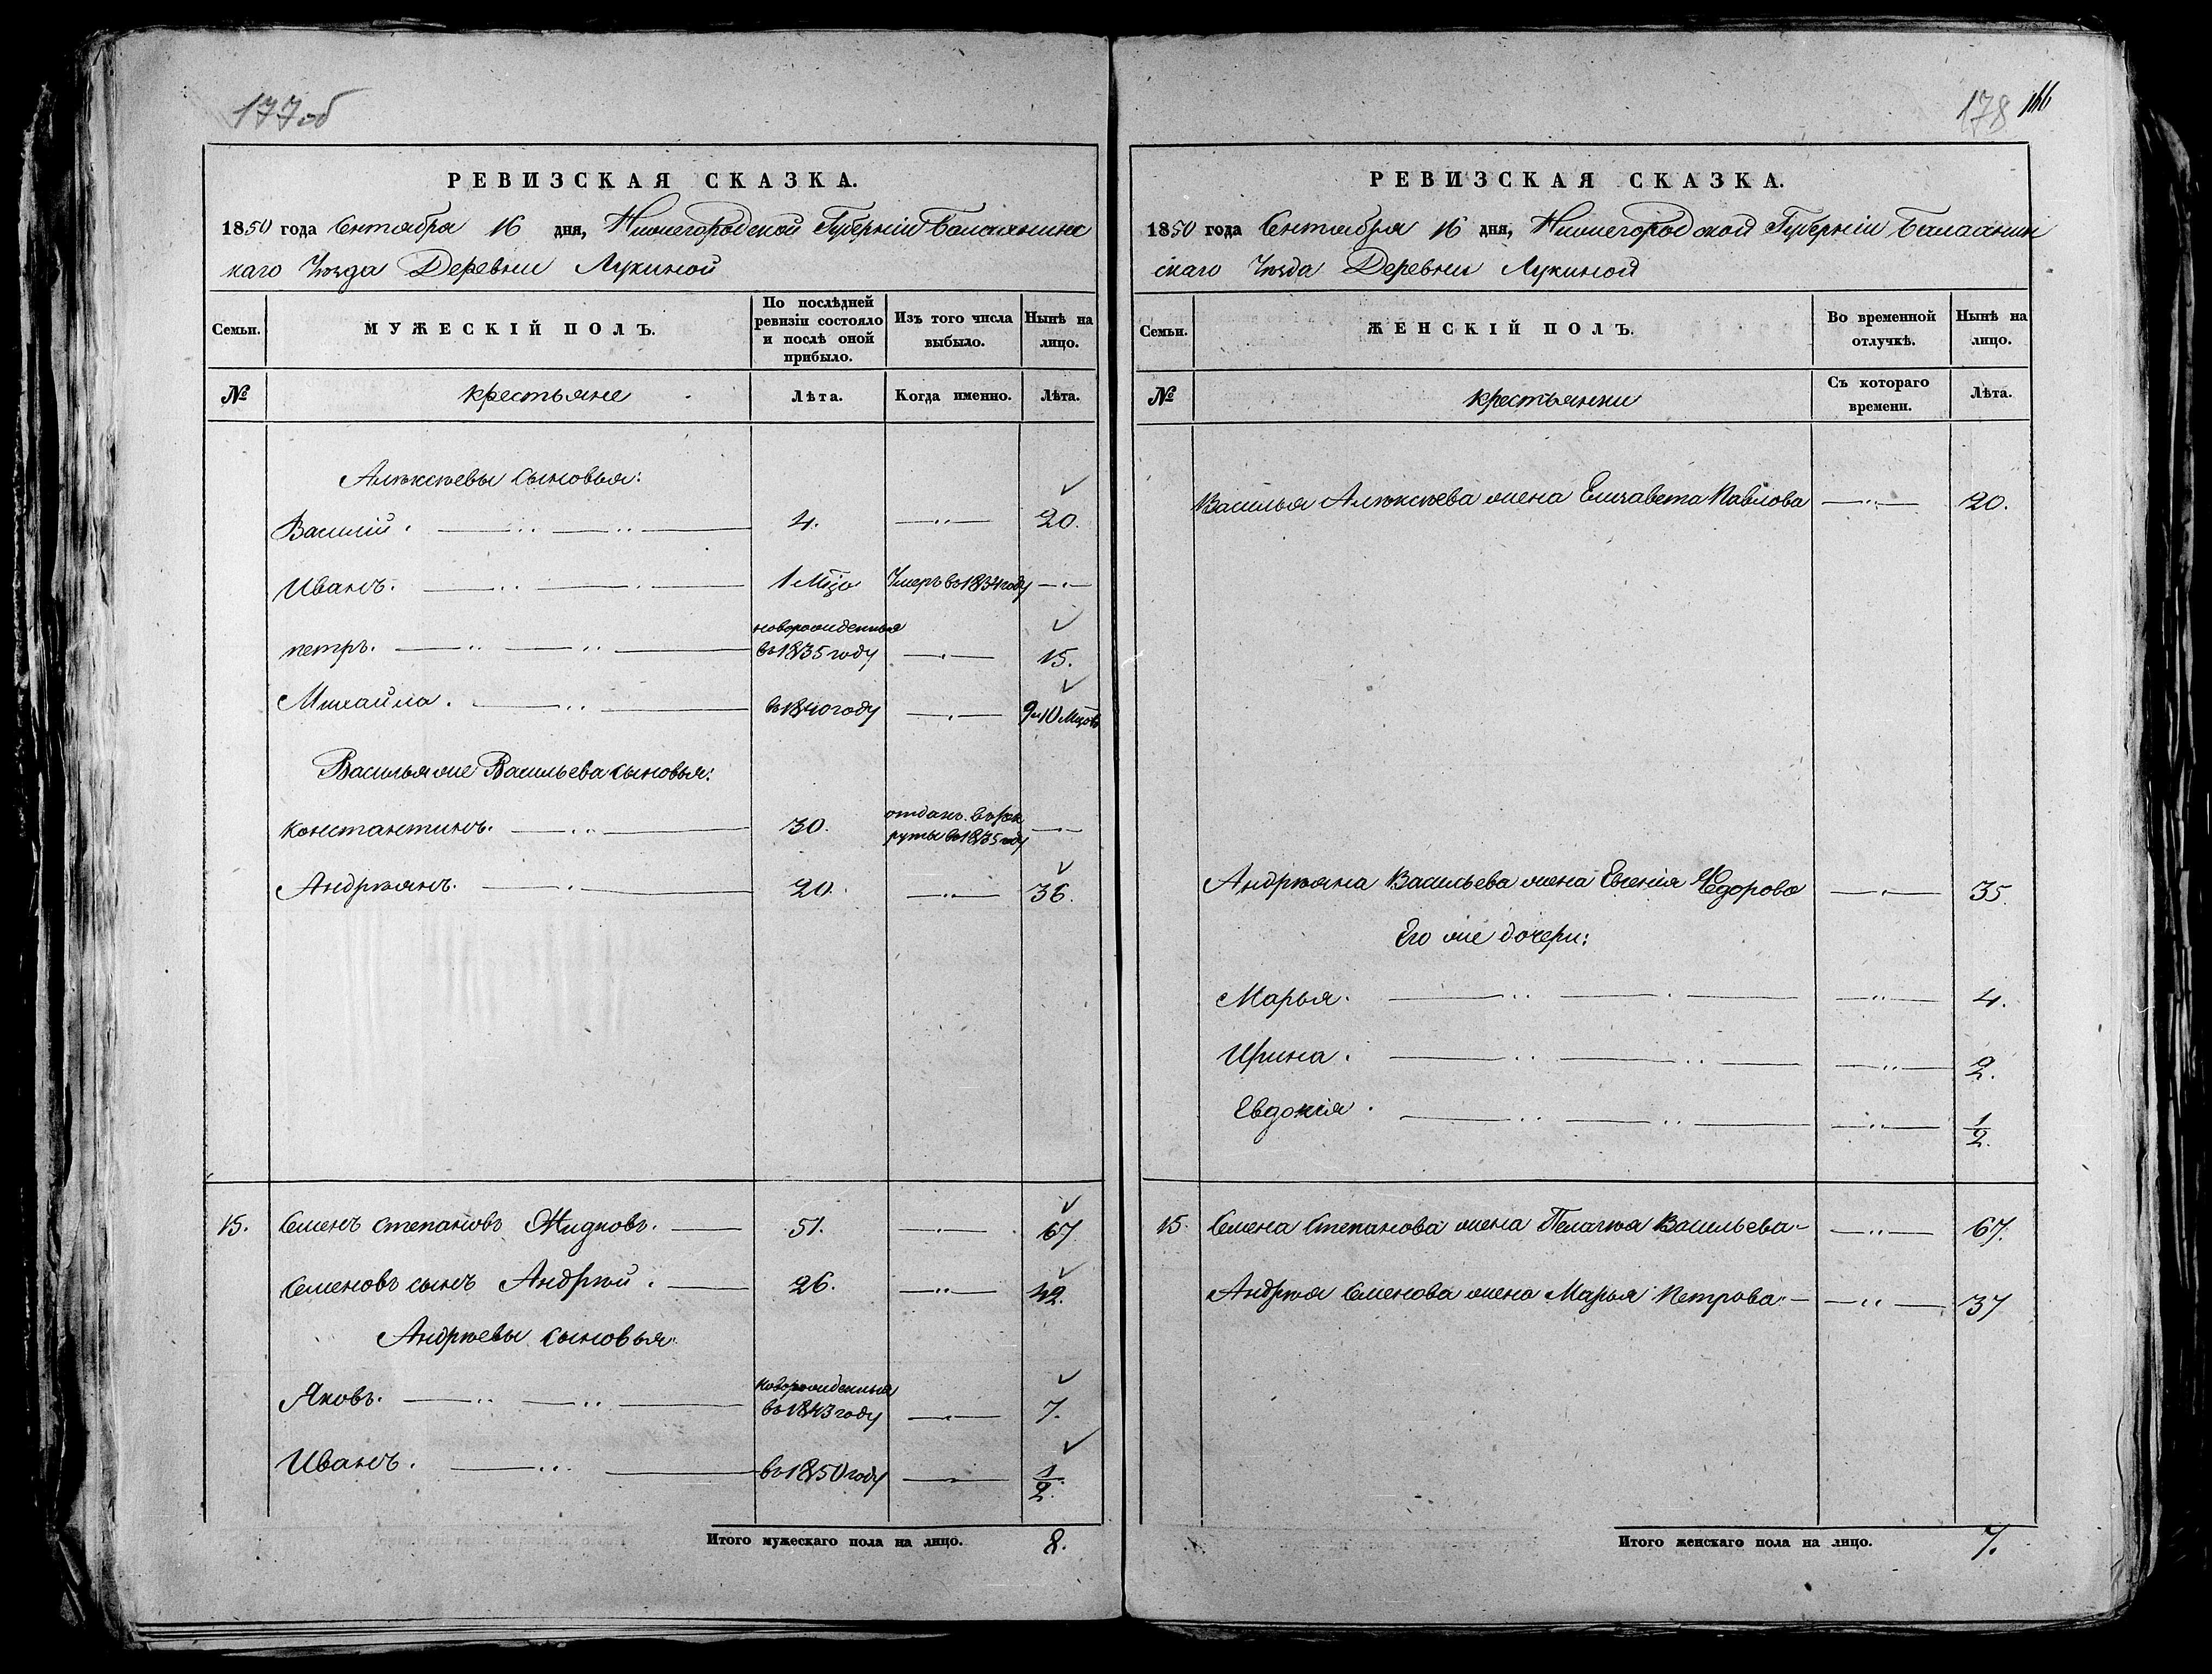 177 об
РЕВИЗСКАЯ СКАЗКА.
1850 года Сентября 16 дня, Нижегородской Губерніи Балахнинс
каго Уѣзда Деревни Лукиной
Семьи.
МУЖЕСКІЙ ПОЛЪ.
По послѣдней
ревизіи состояло
и послѣ оной
прибыло.
Изъ того числа
выбыло.
Нынѣ на
лицо.
№ крестьяне Лѣта. Когда именно. Лѣта.
Алѣксѣевы сыновья:
Василій. 4. 20.
Иванъ. 1 Мца Умеръ въ 1834 году
петръ. новорожденныя въ 1835 году 15.
Михайла. въ 1840 году 9 и 10 Мцовъ
Василья же Васильева сыновья:
константинъ. 30. отданъ въ рек
руты въ 1835 году
Андрѣянъ. 20. 36.
15. Семенъ степановъ Жидковъ. 51. 67
Семеновъ сынъ Андрѣй. 26. 42.
Андрѣевы сыновья:
Яковъ. новорожденныя въ 1843 году 7.
Иванъ. въ 1850 году 1/2.
Итого мужескаго пола на лицо. 8.
178 166
РЕВИЗСКАЯ СКАЗКА.
1850 года Сентября 16 дня, Нижегородской Губерніи Балахнин
скаго Уѣзда Деревни Лукиной
Семьи.
ЖЕНСКІЙ ПОЛЪ.
Во временной
отлучкѣ.
Нынѣ на
лицо.
№ крестьянки Съ котораго
времени.
Лѣта.
Василья Алѣксѣева жена Елизавета Павлова 20.
Андрѣяна Васильева жена Евгенія Ѳедорова 35.
Его же дочери:
Марья. 4.
Ирина. 2.
Евдокія. 1/2.
15. Семена Степанова жена Пелагѣя Васильева 67.
Андрѣя Семенова жена Марья Петрова 37
Итого женскаго пола на лицо. 7.